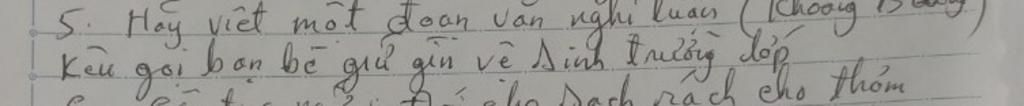 5. Hãy viết một đoạn văn nghị luận (khoảng 15 dòng)
Kêu gọi bạn bè giữ gìn vệ sinh trường lớp
cho sạch rách cho thơm